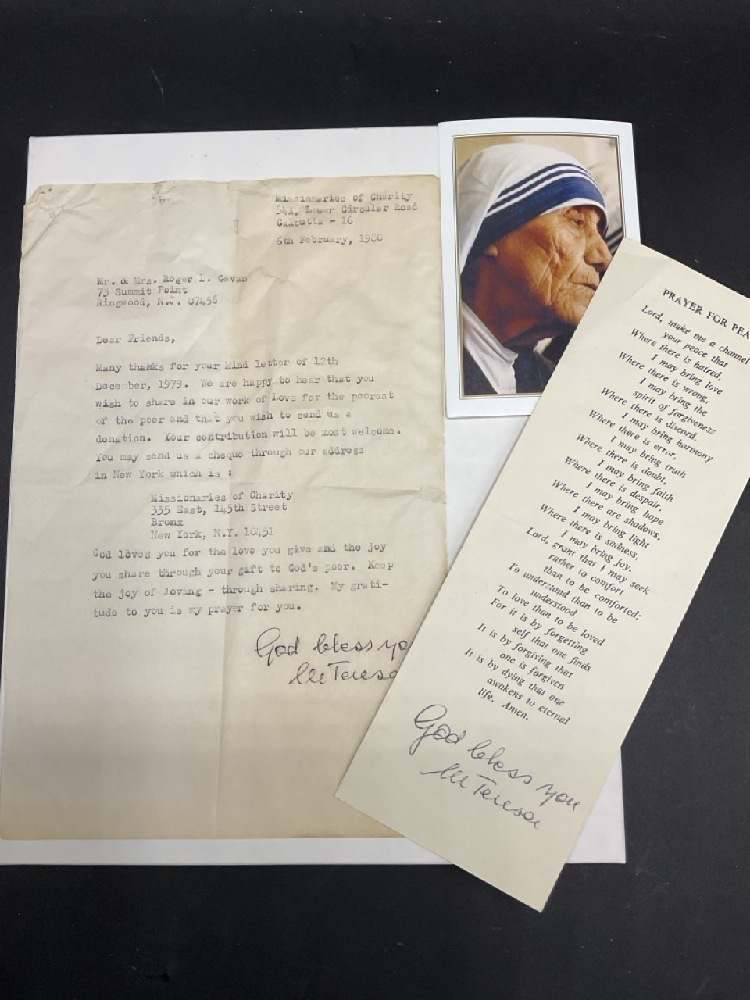 Missionaries of Charity
54A, Lower Circular Road
Calcutta - 16
6th February, 1980
Mr. & Mrs. Roger L. Cavan
73 Summit Point
Ringwood, N.J. 07456
Dear Friends,
Many thanks for your kind letter of 12th
December, 1979. We are happy to hear that you
wish to share in our work of love for the poorest
of the poor and that you wish to send us a
donation. Your contribution will be most welcome.
You may send us a cheque through our address
in New York which is :
Missionaries of Charity
335 East, 145th Street
Bronx
New York, N.Y. 10451
God loves you for the love you give and the joy
you share through your gift to God's poor. Keep
the joy of loving - through sharing. My grati-
tude to you is my prayer for you.
God bless you
M Teresa
PRAYER FOR PEA
Lord, make me a channel
your peace that
Where there is hatred,
I may bring love
Where there is wrong,
I may bring the
spirit of forgiveness
Where there is discord,
I may bring harmony
Where there is error,
I may bring truth
Where there is doubt,
I may bring faith
Where there is despair,
I may bring hope
Where there are shadows,
I may bring light
Where there is sadness,
I may bring joy.
Lord, grant that I may seek
rather to comfort
than to be comforted;
To understand than to be
understood
To love than to be loved
For it is by forgetting
self that one finds
It is by forgiving that
one is forgiven
It is by dying that one
awakens to eternal
life. Amen.
God bless you
M Teresa